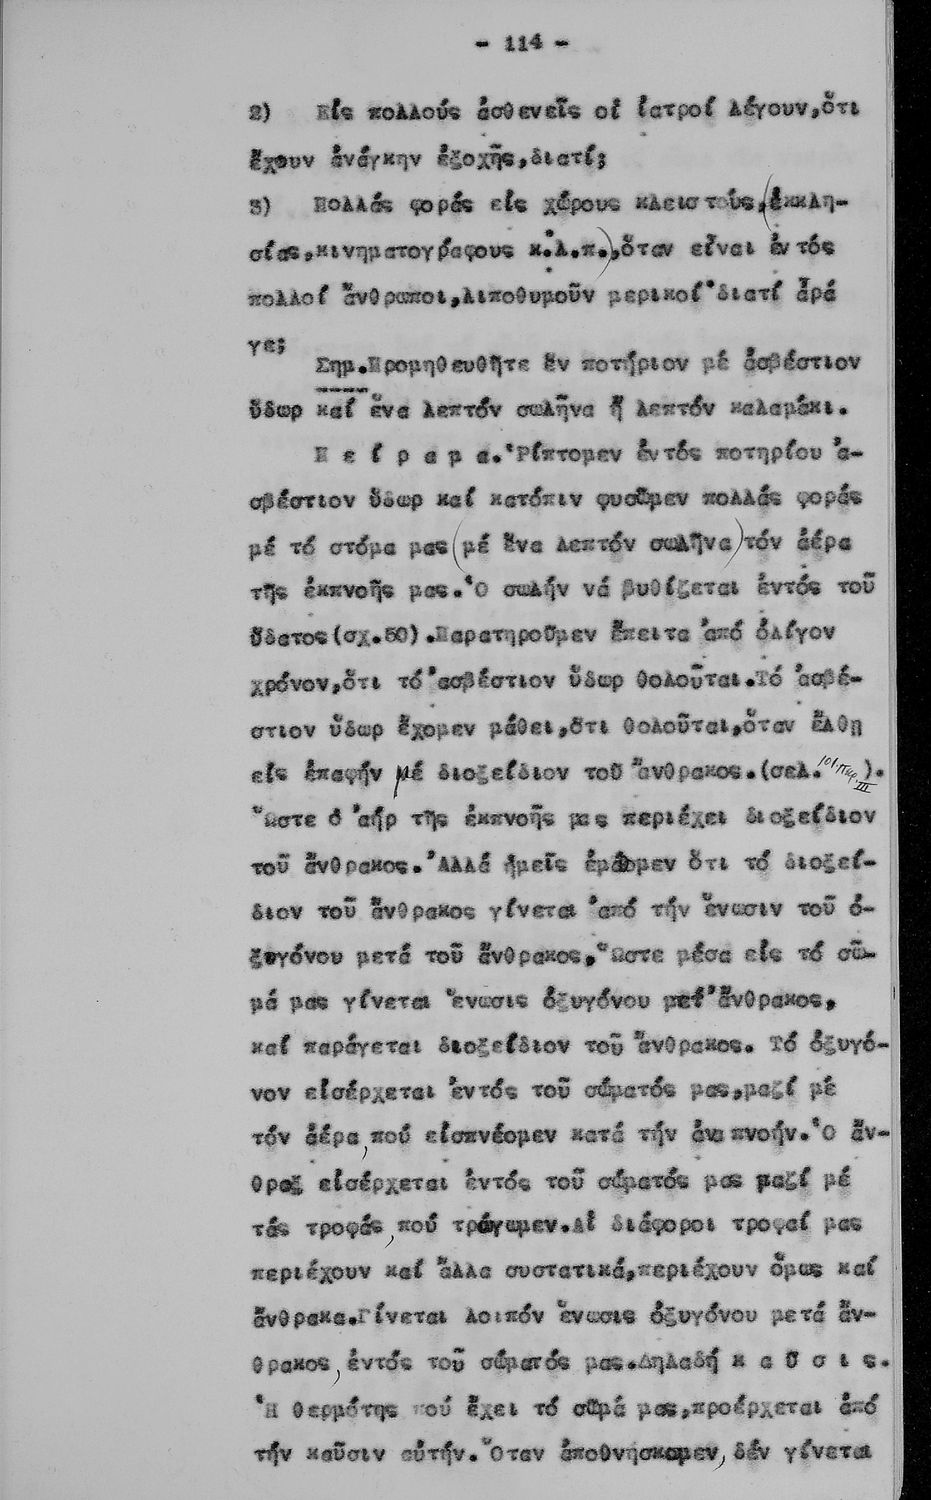 - 114 -
2) Είς πολλούς ἀσθενεῖς οἱ ἰατροί λέγουν,ὅτι
ἔχουν ἀνάγκην ἐξοχῆς,διατί;
3) Πολλάς φοράς εἰς χώρους κλειστούς,(ἐκκλη-
σίας,κινηματογράφους κ.λ.π.),ὅταν εἶναι ἐντός
πολλοί ἄνθρωποι,λιποθυμοῦν μερικοί·διατί ἆρά
γε;
Σημ.Προμηθευθῆτε ἕν ποτήριον μέ ἀσβέστιον
ὕδωρ καί ἕνα λεπτόν σωλῆνα ἤ λεπτόν καλαμάκι.
Π ε ί ρ α μ α.Ῥίπτομεν ἐντός ποτηρίου ἀ-
σβέστιον ὕδωρ καί κατόπιν φυσῶμεν πολλάς φοράς
μέ τό στόμα μας(μέ ἕνα λεπτόν σωλῆνα)τόν ἀέρα
τῆς ἐκπνοῆς μας.Ὁ σωλήν νά βυθίζεται ἐντός τοῦ
ὕδατος(σχ.50).Παρατηροῦμεν ἔπειτα ἀπό ὀλίγον
χρόνον,ὅτι τό ἀσβέστιον ὕδωρ θολοῦται.Τό ἀσβέ-
στιον ὕδωρ ἔχομεν μάθει,ὅτι θολοῦται,ὅταν ἔλθῃ
εἰς ἐπαφήν μέ διοξείδιον τοῦ ἄνθρακος.(σελ.101.πειρ. III).
Ὥστε ὁ ἀήρ τῆς ἐκπνοῆς μας περιέχει διοξείδιον
τοῦ ἄνθρακος.Ἀλλά ἡμεῖς ἐμάθομεν ὅτι τό διοξεί-
διον τοῦ ἄνθρακος γίνεται ἀπό τήν ἕνωσιν τοῦ ὀ-
ξυγόνου μετά τοῦ ἄνθρακος.Ὥστε μέσα εἰς τό σῶ-
μά μας γίνεται ἕνωσις ὀξυγόνου μετ' ἄνθρακος,
καί παράγεται διοξείδιον τοῦ ἄνθρακος. Τό ὀξυγό-
νον εἰσέρχεται ἐντός τοῦ σώματός μας,μαζί μέ
τόν ἀέρα,πού εἰσπνέομεν κατά τήν ἀναπνοήν.Ὁ ἄν-
θραξ εἰσέρχεται ἐντός τοῦ σώματός μας μαζί μέ
τάς τροφάς,πού τρώγωμεν.Αἱ διάφοροι τροφαί μας
περιέχουν καί ἄλλα συστατικά,περιέχουν ὅμως καί
ἄνθρακα.Γίνεται λοιπόν ἕνωσις ὀξυγόνου μετά ἄν-
θρακος,ἐντός τοῦ σώματός μας.Δηλαδή κ α ῦ σ ι ς.
Ἡ θερμότης πού ἔχει τό σῶμά μας,προέρχεται ἀπό
τήν καῦσιν αὐτήν.Ὅταν ἀποθνήσκομεν,δέν γίνεται